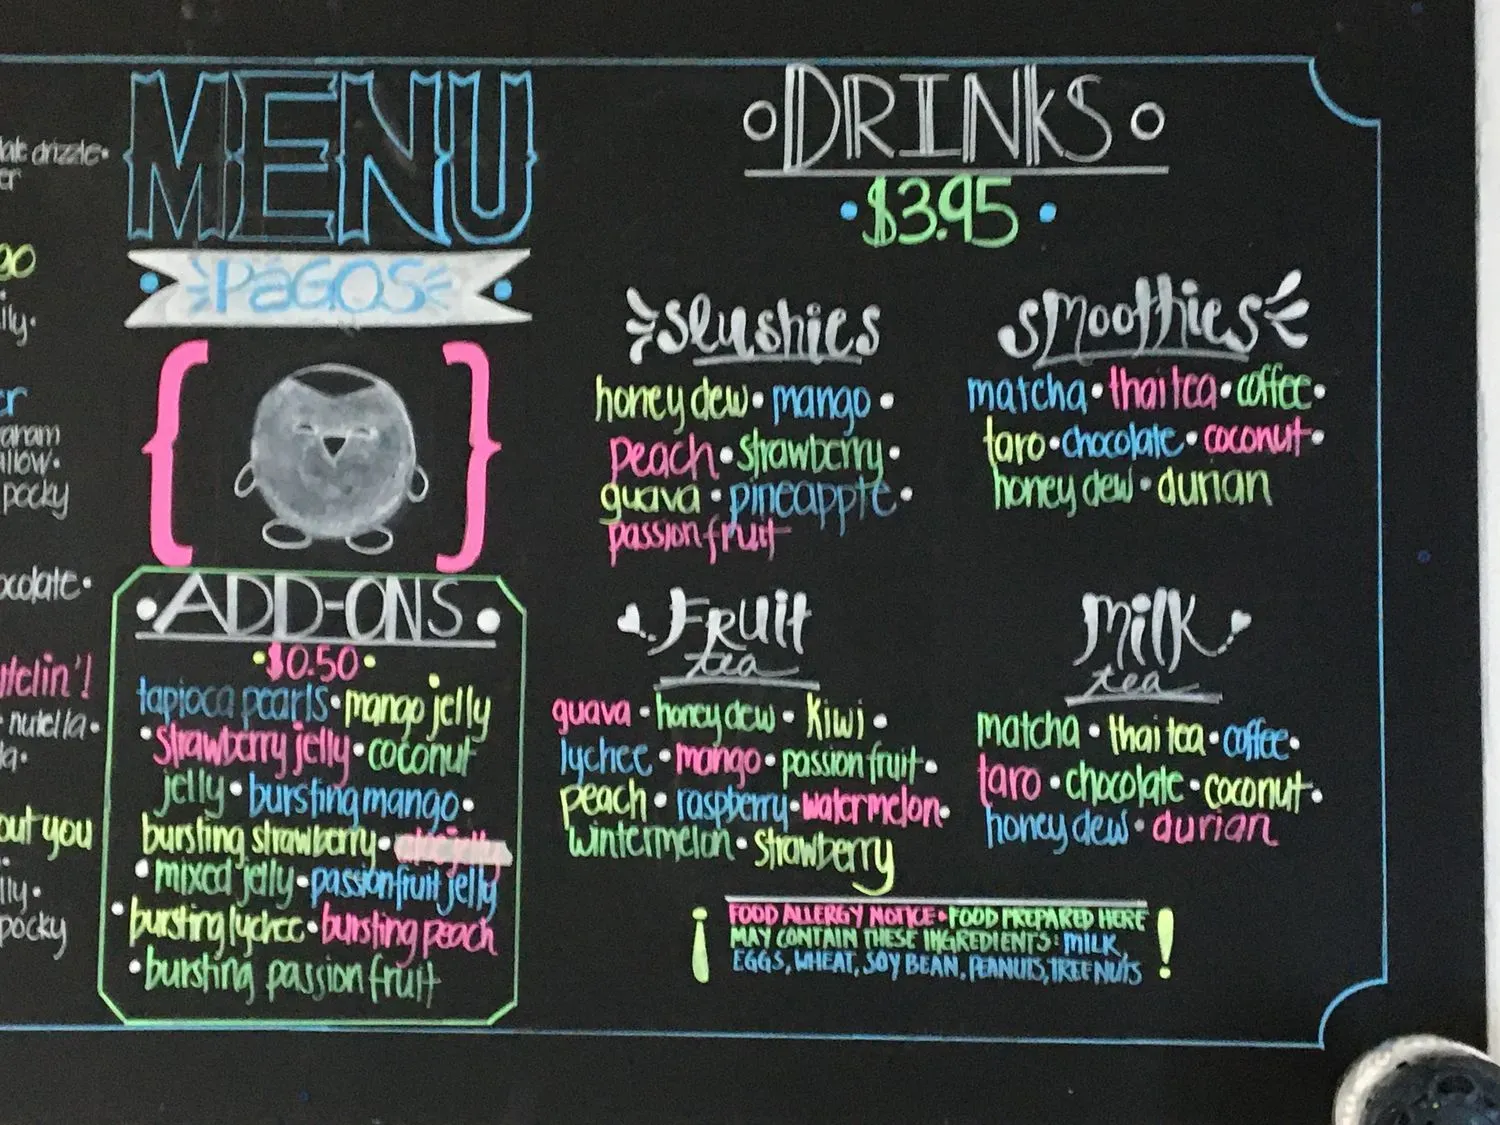 drizzle•
go
pocky
nutella•
out you
pocky
MENU
PaGOS
ADD-ONS
•$0.50•
tapioca pearls•mango jelly
•strawberry jelly•coconut
jelly•bursting mango•
bursting strawberry•
•mixed jelly•passionfruit jelly
•bursting lychee•bursting peach
•bursting passion fruit
DRINKS
•$3.95•
slushies
honey dew•mango•
peach•strawberry•
guava•pineapple•
passion fruit
smoothies
matcha•thai tea•coffee•
taro•chocolate•coconut•
honey dew•durian
Fruit
tea
guava•honey dew•kiwi•
lychee•mango•passion fruit•
peach•raspberry•watermelon•
wintermelon•strawberry
Milk
tea
matcha•thai tea•coffee•
taro•chocolate•coconut•
honey dew•durian
¡ FOOD ALLERGY NOTICE•FOOD PREPARED HERE !
MAY CONTAIN THESE INGREDIENTS: MILK,
EGGS, WHEAT, SOY BEAN, PEANUTS, TREE NUTS